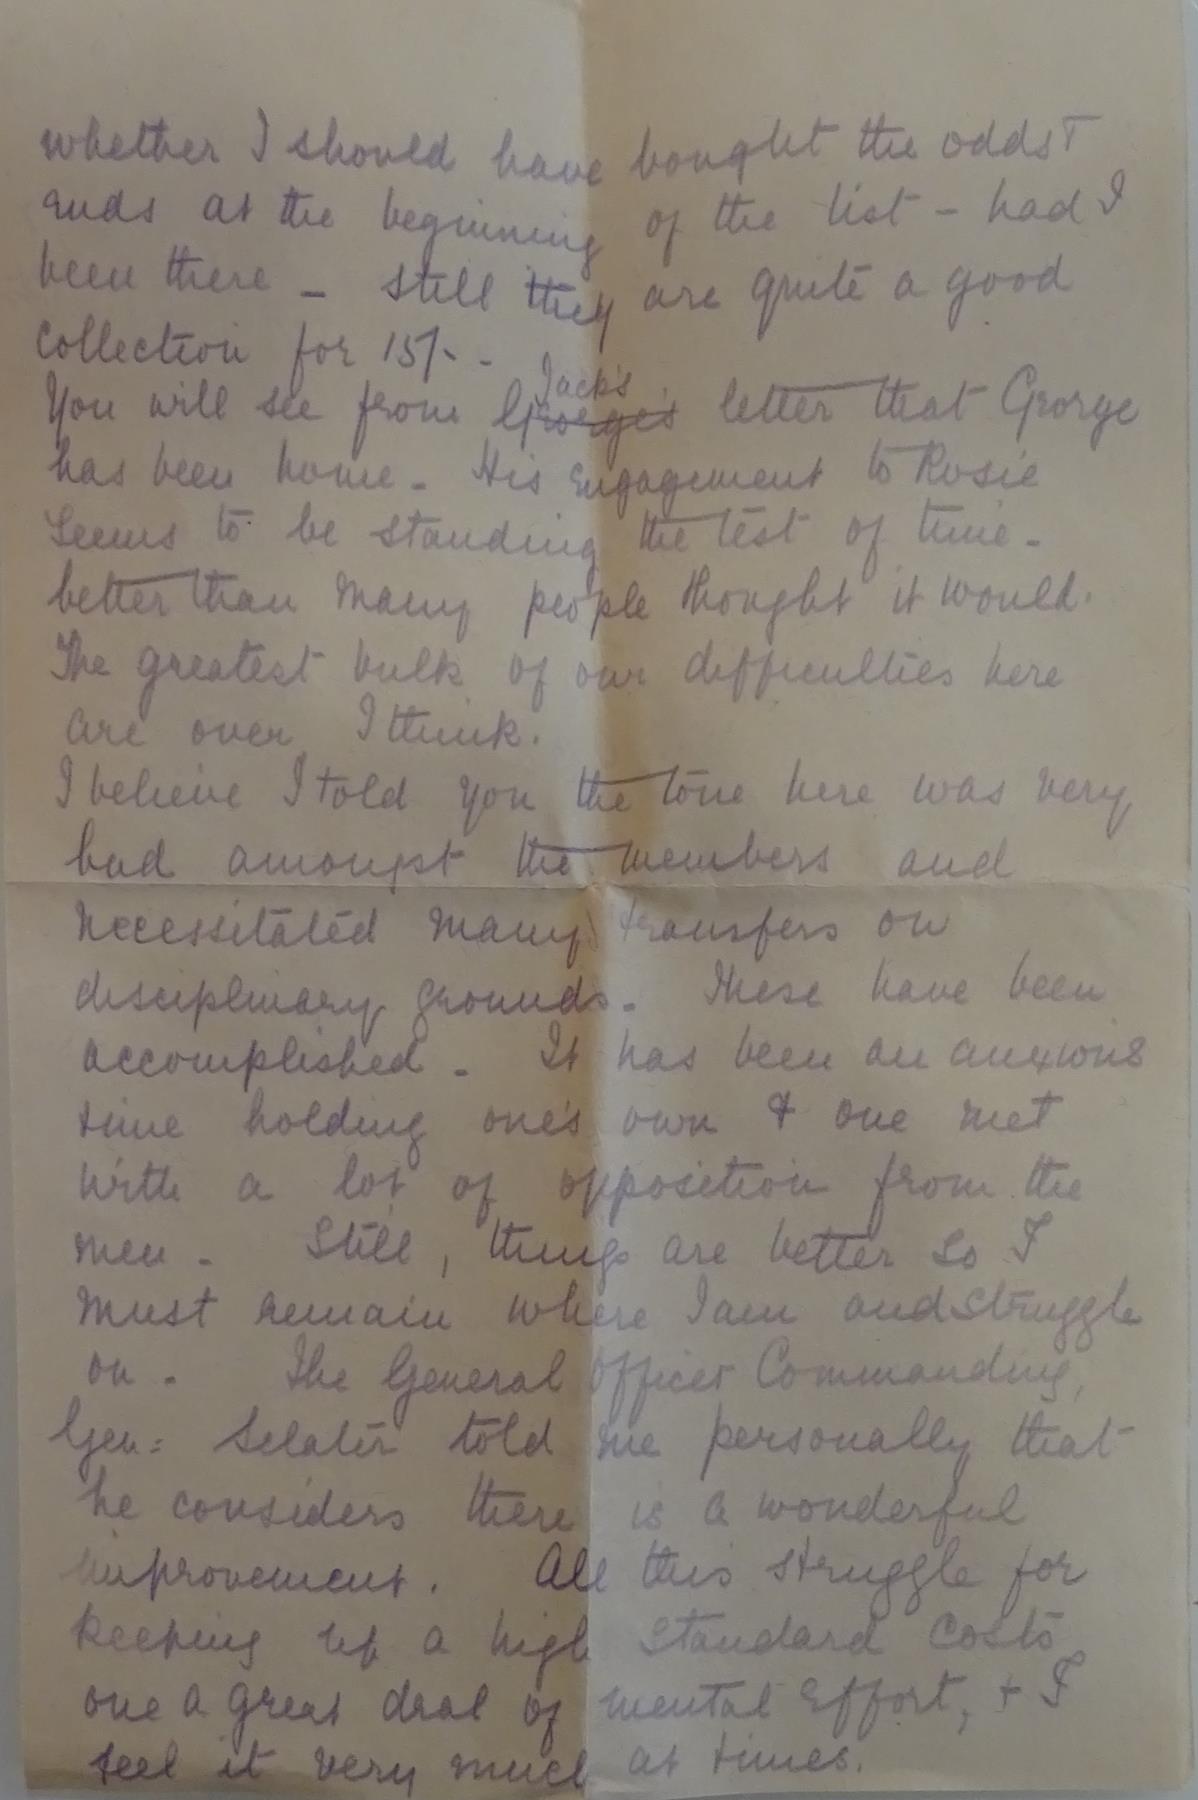 whether I should have bought the odds +
ends at the beginning of the list - had I
been there - still they are quite a good
collection for 15/- -
You will see from George's Jack's letter that George
has been home - His Engagement to Rosie
seems to be standing the test of time -
better than many people thought it would.
The greatest bulk of our difficulties here
are over I think.
I believe I told you the tone here was very
bad amongst the members and
necessitated many transfers on
disciplinary grounds - These have been
accomplished - It has been an anxious
time holding one's own & one met
with a lot of opposition from the
men - Still, things are better so I
must remain where I am and struggle
on - The General Officer Commanding,
Gen: Sclater told me personally that
he considers there is a wonderful
improvement. All this struggle for
keeping up a high standard costs
one a great deal of mental effort, + I
feel it very much at times.